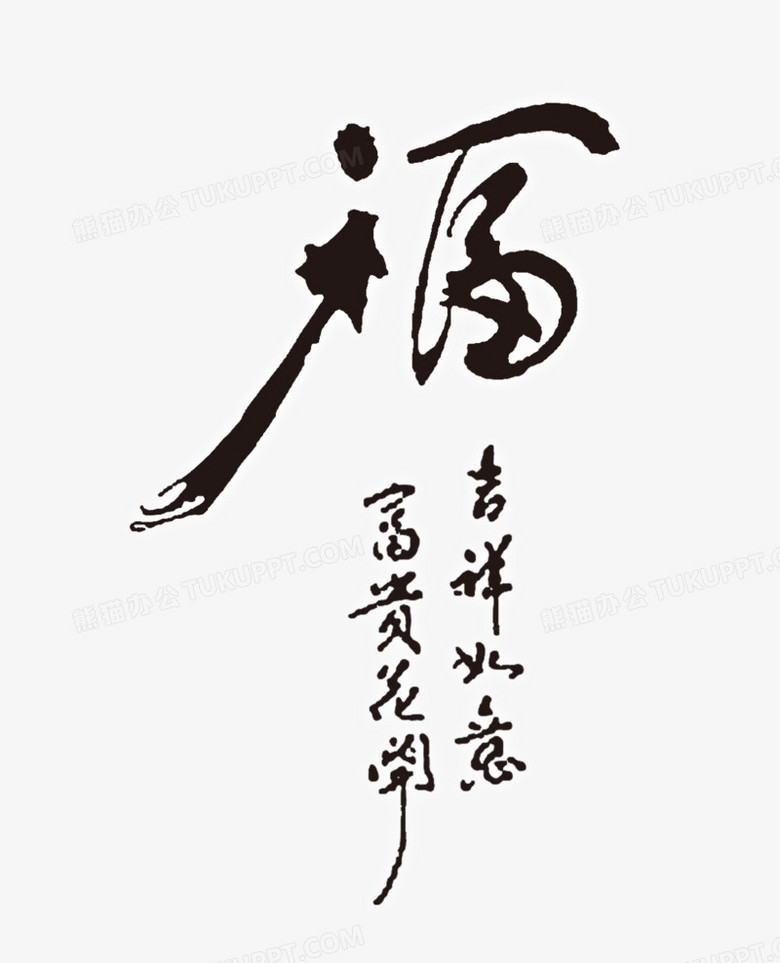 福
吉祥如意
富貴花開
熊猫办公 TUKUPPT.COM
熊猫办公 TUKUPPT.COM
熊猫办公 TUKUPPT.COM
熊猫办公 TUKUPPT.COM